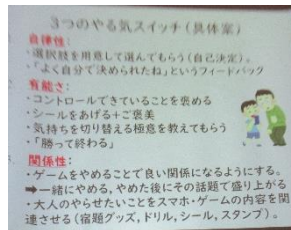 3つのやる気スイッチ(具体案)
自律性:
・選択肢を用意して選んでもらう(自己決定)。
・「よく自分で決められたね」というフィードバック
有能さ:
・コントロールできていることを褒める
・シールをあげる+ご褒美
・気持ちを切り替える極意を教えてもらう
・「勝って終わる」
関係性:
・ゲームをやめることで良い関係になるようにする。
➡一緒にやめる、やめた後にその話題で盛り上がる
・大人のやらせたいことをスマホ・ゲームの内容を関
連させる(宿題グッズ、ドリル、シール、スタンプ)。